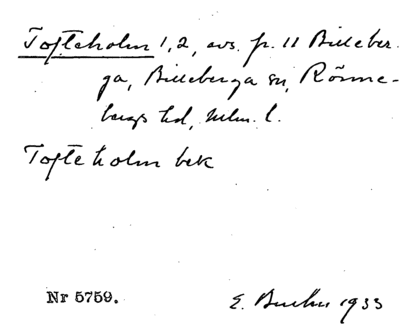 Tofteholm 1,2, avs. fr. 11 Billeber-
ga, Billeberga sn, Rönne-
bergs hd, Mlm. l.
Tofteholm bek
Nr 5759.
E. 1933